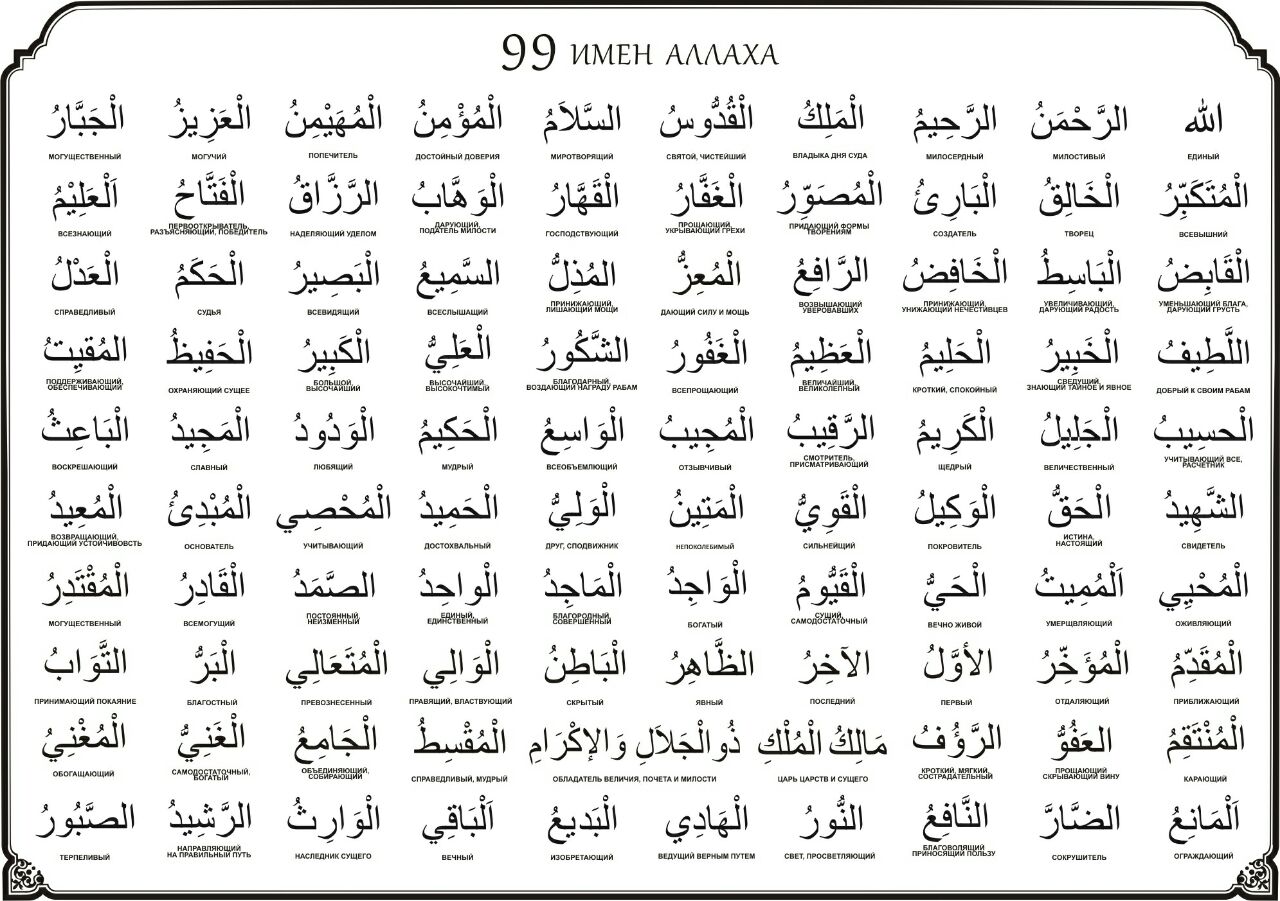 99 ИМЕН АЛЛАХА
الله الرَّحْمَنُ الرَّحِيمُ الْمَلِكُ الْقُدُّوسُ السَّلاَمُ الْمُؤْمِنُ الْمُهَيْمِنُ الْعَزِيزُ الْجَبَّارُ
ЕДИНЫЙ МИЛОСТИВЫЙ МИЛОСЕРДНЫЙ ВЛАДЫКА ДНЯ СУДА СВЯТОЙ, ЧИСТЕЙШИЙ МИРОТВОРЯЩИЙ ДОСТОЙНЫЙ ДОВЕРИЯ ПОПЕЧИТЕЛЬ МОГУЧИЙ МОГУЩЕСТВЕННЫЙ
الْمُتَكَبِّرُ الْخَالِقُ الْبَارِئُ الْمُصَوِّرُ الْغَفَّارُ الْقَهَّارُ الْوَهَّابُ الرَّزَّاقُ الْفَتَّاحُ اَلْعَلِيْمُ
ВСЕВЫШНИЙ ТВОРЕЦ СОЗДАТЕЛЬ ПРИДАЮЩИЙ ФОРМЫ ТВОРЕНИЯМ ПРОЩАЮЩИЙ, УКРЫВАЮЩИЙ ГРЕХИ ГОСПОДСТВУЮЩИЙ ДАРУЮЩИЙ, ПОДАТЕЛЬ МИЛОСТИ НАДЕЛЯЮЩИЙ УДЕЛОМ ПЕРВООТКРЫВАТЕЛЬ, РАЗЪЯСНЯЮЩИЙ, ПОБЕДИТЕЛЬ ВСЕЗНАЮЩИЙ
الْقَابِضُ الْبَاسِطُ الْخَافِضُ الرَّافِعُ الْمُعِزُّ المُذِلُّ السَّمِيعُ الْبَصِيرُ الْحَكَمُ الْعَدْلُ
УМЕНЬШАЮЩИЙ БЛАГА, ДАРУЮЩИЙ ГРУСТЬ УВЕЛИЧИВАЮЩИЙ, ДАРУЮЩИЙ РАДОСТЬ ПРИНИЖАЮЩИЙ, УНИЖАЮЩИЙ НЕЧЕСТИВЦЕВ ВОЗВЫШАЮЩИЙ УВЕРОВАВШИХ ДАЮЩИЙ СИЛУ И МОЩЬ ПРИНИЖАЮЩИЙ, ЛИШАЮЩИЙ МОЩИ ВСЕСЛЫШАЩИЙ ВСЕВИДЯЩИЙ СУДЬЯ СПРАВЕДЛИВЫЙ
اللَّطِيفُ الْخَبِيرُ الْحَلِيمُ الْعَظِيمُ الْغَفُورُ الشَّكُورُ الْعَلِيُّ الْكَبِيرُ الْحَفِيظُ المُقيِتُ
ДОБРЫЙ К СВОИМ РАБАМ СВЕДУЩИЙ, ЗНАЮЩИЙ ТАЙНОЕ И ЯВНОЕ КРОТКИЙ, СПОКОЙНЫЙ ВЕЛИЧАЙШИЙ, ВЕЛИКОЛЕПНЫЙ ВСЕПРОЩАЮЩИЙ БЛАГОДАРНЫЙ, ВОЗДАЮЩИЙ НАГРАДУ РАБАМ ВЫСОЧАЙШИЙ, ВЫСОКОЧТИМЫЙ БОЛЬШОЙ, ВЫСОЧАЙШИЙ ОХРАНЯЮЩИЙ СУЩЕЕ ПОДДЕРЖИВАЮЩИЙ, ОБЕСПЕЧИВАЮЩИЙ
الْحسِيبُ الْجَلِيلُ الْكَرِيمُ الرَّقِيبُ الْمُجِيبُ الْوَاسِعُ الْحَكِيمُ الْوَدُودُ الْمَجِيدُ الْبَاعِثُ
УЧИТЫВАЮЩИЙ ВСЕ, РАСЧЕТНИК ВЕЛИЧЕСТВЕННЫЙ ЩЕДРЫЙ СМОТРИТЕЛЬ, ПРИСМАТРИВАЮЩИЙ ОТЗЫВЧИВЫЙ ВСЕОБЪЕМЛЮЩИЙ МУДРЫЙ ЛЮБЯЩИЙ СЛАВНЫЙ ВОСКРЕШАЮЩИЙ
الشَّهِيدُ الْحَقُّ الْوَكِيلُ الْقَوِيُّ الْمَتِينُ الْوَلِيُّ الْحَمِيدُ الْمُحْصِي الْمُبْدِئُ الْمُعِيدُ
СВИДЕТЕЛЬ ИСТИНА, НАСТОЯЩИЙ ПОКРОВИТЕЛЬ СИЛЬНЕЙЩИЙ НЕПОКОЛЕБИМЫЙ ДРУГ, СПОДВИЖНИК ДОСТОХВАЛЬНЫЙ УЧИТЫВАЮЩИЙ ОСНОВАТЕЛЬ ВОЗВРАЩАЮЩИЙ, ПРИДАЮЩИЙ УСТОЙЧИВОВСТЬ
الْمُحْيِي اَلْمُمِيتُ الْحَيُّ الْقَيُّومُ الْوَاجِدُ الْمَاجِدُ الْواحِدُ الصَّمَدُ الْقَادِرُ الْمُقْتَدِرُ
ОЖИВЛЯЮЩИЙ УМЕРЩВЛЯЮЩИЙ ВЕЧНО ЖИВОЙ СУЩИЙ, САМОДОСТАТОЧНЫЙ БОГАТЫЙ БЛАГОРОДНЫЙ, СОВЕРШЕННЫЙ ЕДИНЫЙ, ЕДИНСТВЕННЫЙ ПОСТОЯННЫЙ, НЕИЗМЕННЫЙ ВСЕМОГУЩИЙ МОГУЩЕСТВЕННЫЙ
الْمُقَدِّمُ الْمُؤَخِّرُ الأوَّلُ الآخِرُ الظَّاهِرُ الْبَاطِنُ الْوَالِي الْمُتَعَالِي الْبَرُّ التَّوَابُ
ПРИБЛИЖАЮЩИЙ ОТДАЛЯЮЩИЙ ПЕРВЫЙ ПОСЛЕДНИЙ ЯВНЫЙ СКРЫТЫЙ ПРАВЯЩИЙ, ВЛАСТВУЮЩИЙ ПРЕВОЗНЕСЕННЫЙ БЛАГОСТНЫЙ ПРИНИМАЮЩИЙ ПОКАЯНИЕ
الْمُنْتَقِمُ العَفُوُّ الرَّؤُفُ مَالِكُ الْمُلْكِ ذُوالْجَلاَلِ وَالإكْرَامِ الْمُقْسِطُ الْجَامِعُ الْغَنِيُّ الْمُغْنِيُ
КАРАЮЩИЙ ПРОЩАЮЩИЙ СКРЫВАЮЩИЙ ВИНУ КРОТКИЙ, МЯГКИЙ, СОСТРАДАТЕЛЬНЫЙ ЦАРЬ ЦАРСТВ И СУЩЕГО ОБЛАДАТЕЛЬ ВЕЛИЧИЯ, ПОЧЕТА И МИЛОСТИ СПРАВЕДЛИВЫЙ, МУДРЫЙ ОБЪЕДИНЯЮЩИЙ, СОБИРАЮЩИЙ САМОДОСТАТОЧНЫЙ, БОГАТЫЙ ОБОГАЩАЮЩИЙ
اَلْمَانِعُ الضَارَّ النَّافِعُ النُّورُ الْهَادِي الْبَدِيعُ اَلْبَاقِي الْوَارِثُ الرَّشِيدُ الصَّبُورُ
ОГРАЖДАЮЩИЙ СОКРУШИТЕЛЬ БЛАГОВОЛЯЩИЙ ПРИНОСЯЩИЙ ПОЛЬЗУ СВЕТ, ПРОСВЕТЛЯЮЩИЙ ВЕДУЩИЙ ВЕРНЫМ ПУТЕМ ИЗОБРЕТАЮЩИЙ ВЕЧНЫЙ НАСЛЕДНИК СУЩЕГО НАПРАВЛЯЮЩИЙ НА ПРАВИЛЬНЫЙ ПУТЬ ТЕРПЕЛИВЫЙ